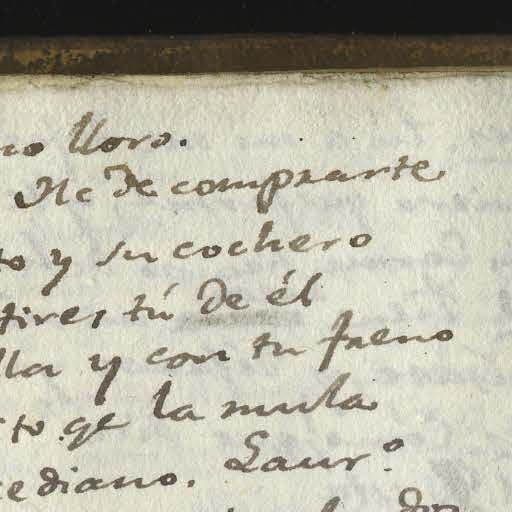 no lloro.
He de comprarte
to y su cochero
tires tú de él
lla y con tu freno
to qe la mula
cediano. Laur.º